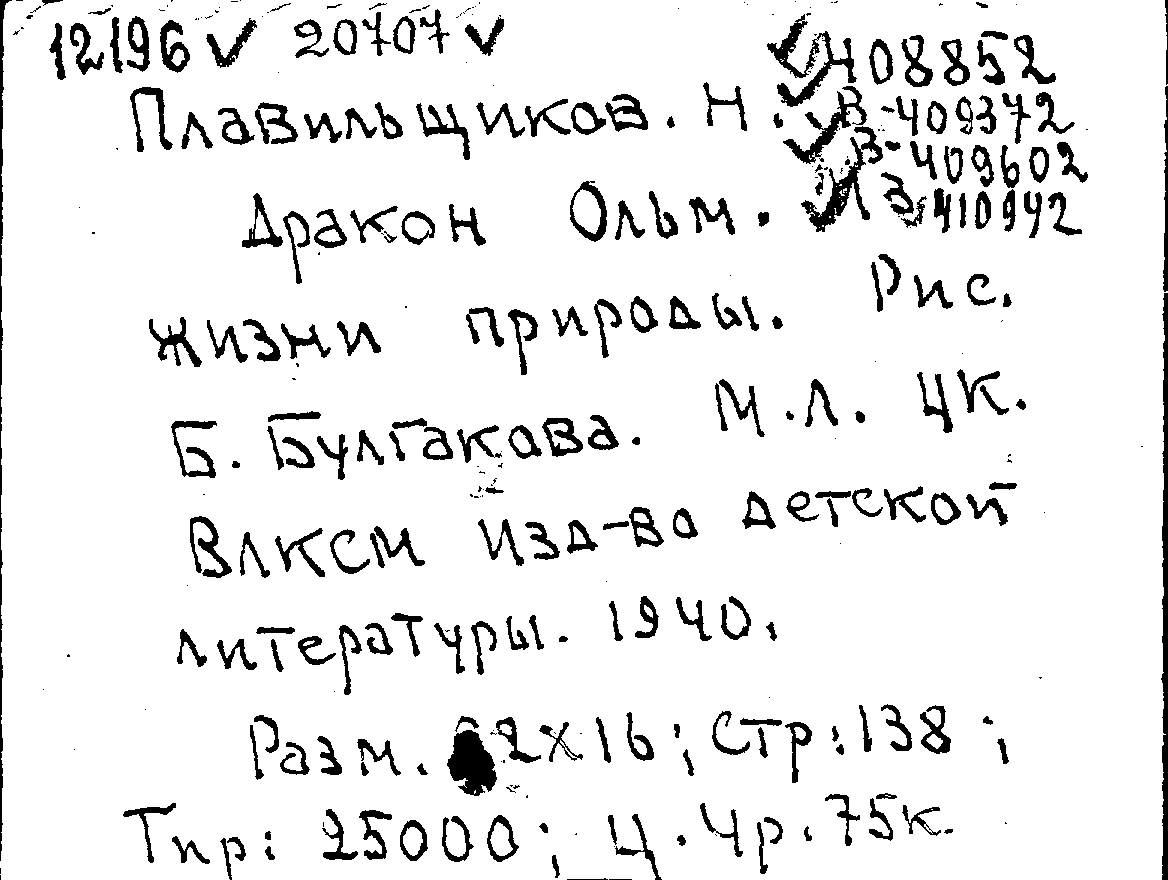 12196 ✓ 20707 ✓
✓ 408852
Плавильщиков. Н. ✓ В-409372
✓ В-409602
Дракон Ольм. ✓ 410942
жизни природы. Рис.
Б. Булгакова. М.Л. ЦК.
ВЛКСМ Изд-во детской
литературы. 1940.
Разм. 2х16; Стр: 138;
Тир: 25000; Ц. 4р. 75к.